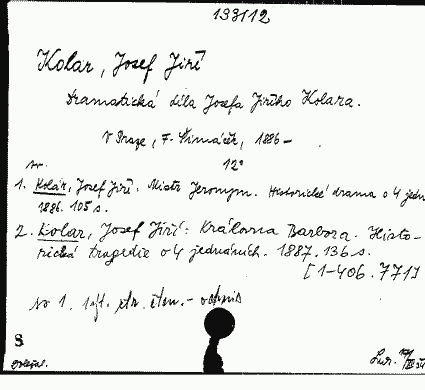 133112
Kolar, Josef Jiří
Dramatická díla Josefa Jiřího Kolara.
V Praze, F. Šimáček, 1886 –
sv. 12°
1. Kolár, Josef Jiří: Mistr Jeronym. Historické drama o 4 jedn
1886. 105 s.
2. Kolar, Josef Jiří: Královna Barbora. Histo-
rická tragedie o 4 jednáních. 1887. 136 s.
[1-406.771]
sv 1.
S